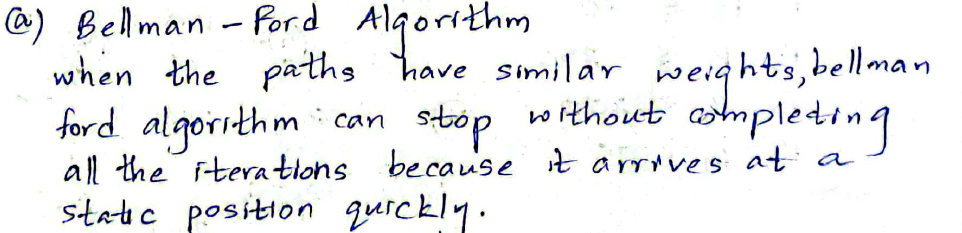 @) Bellman - Ford Algorithm
when the paths have similar weights, bellman
ford algorithm can stop without completing
all the iterations because it arrives at a
static position quickly.